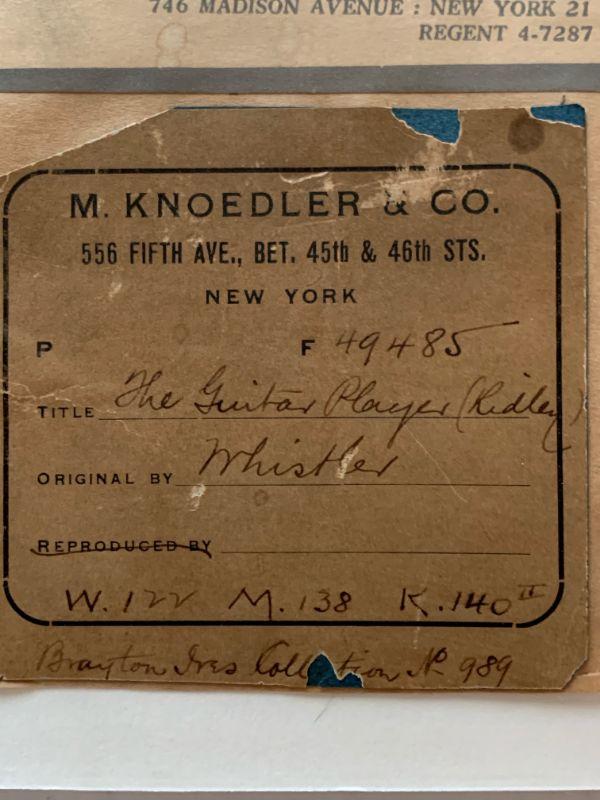 746 MADISON AVENUE : NEW YORK 21
REGENT 4-7287
M. KNOEDLER & CO.
556 FIFTH AVE., BET. 45th & 46th STS.
NEW YORK
P F 49485
TITLE The Guitar Player (Ridley)
ORIGINAL BY Whistler
REPRODUCED BY
W. 122 M. 138 K. 140 II
Brayton Ives Collection No 989